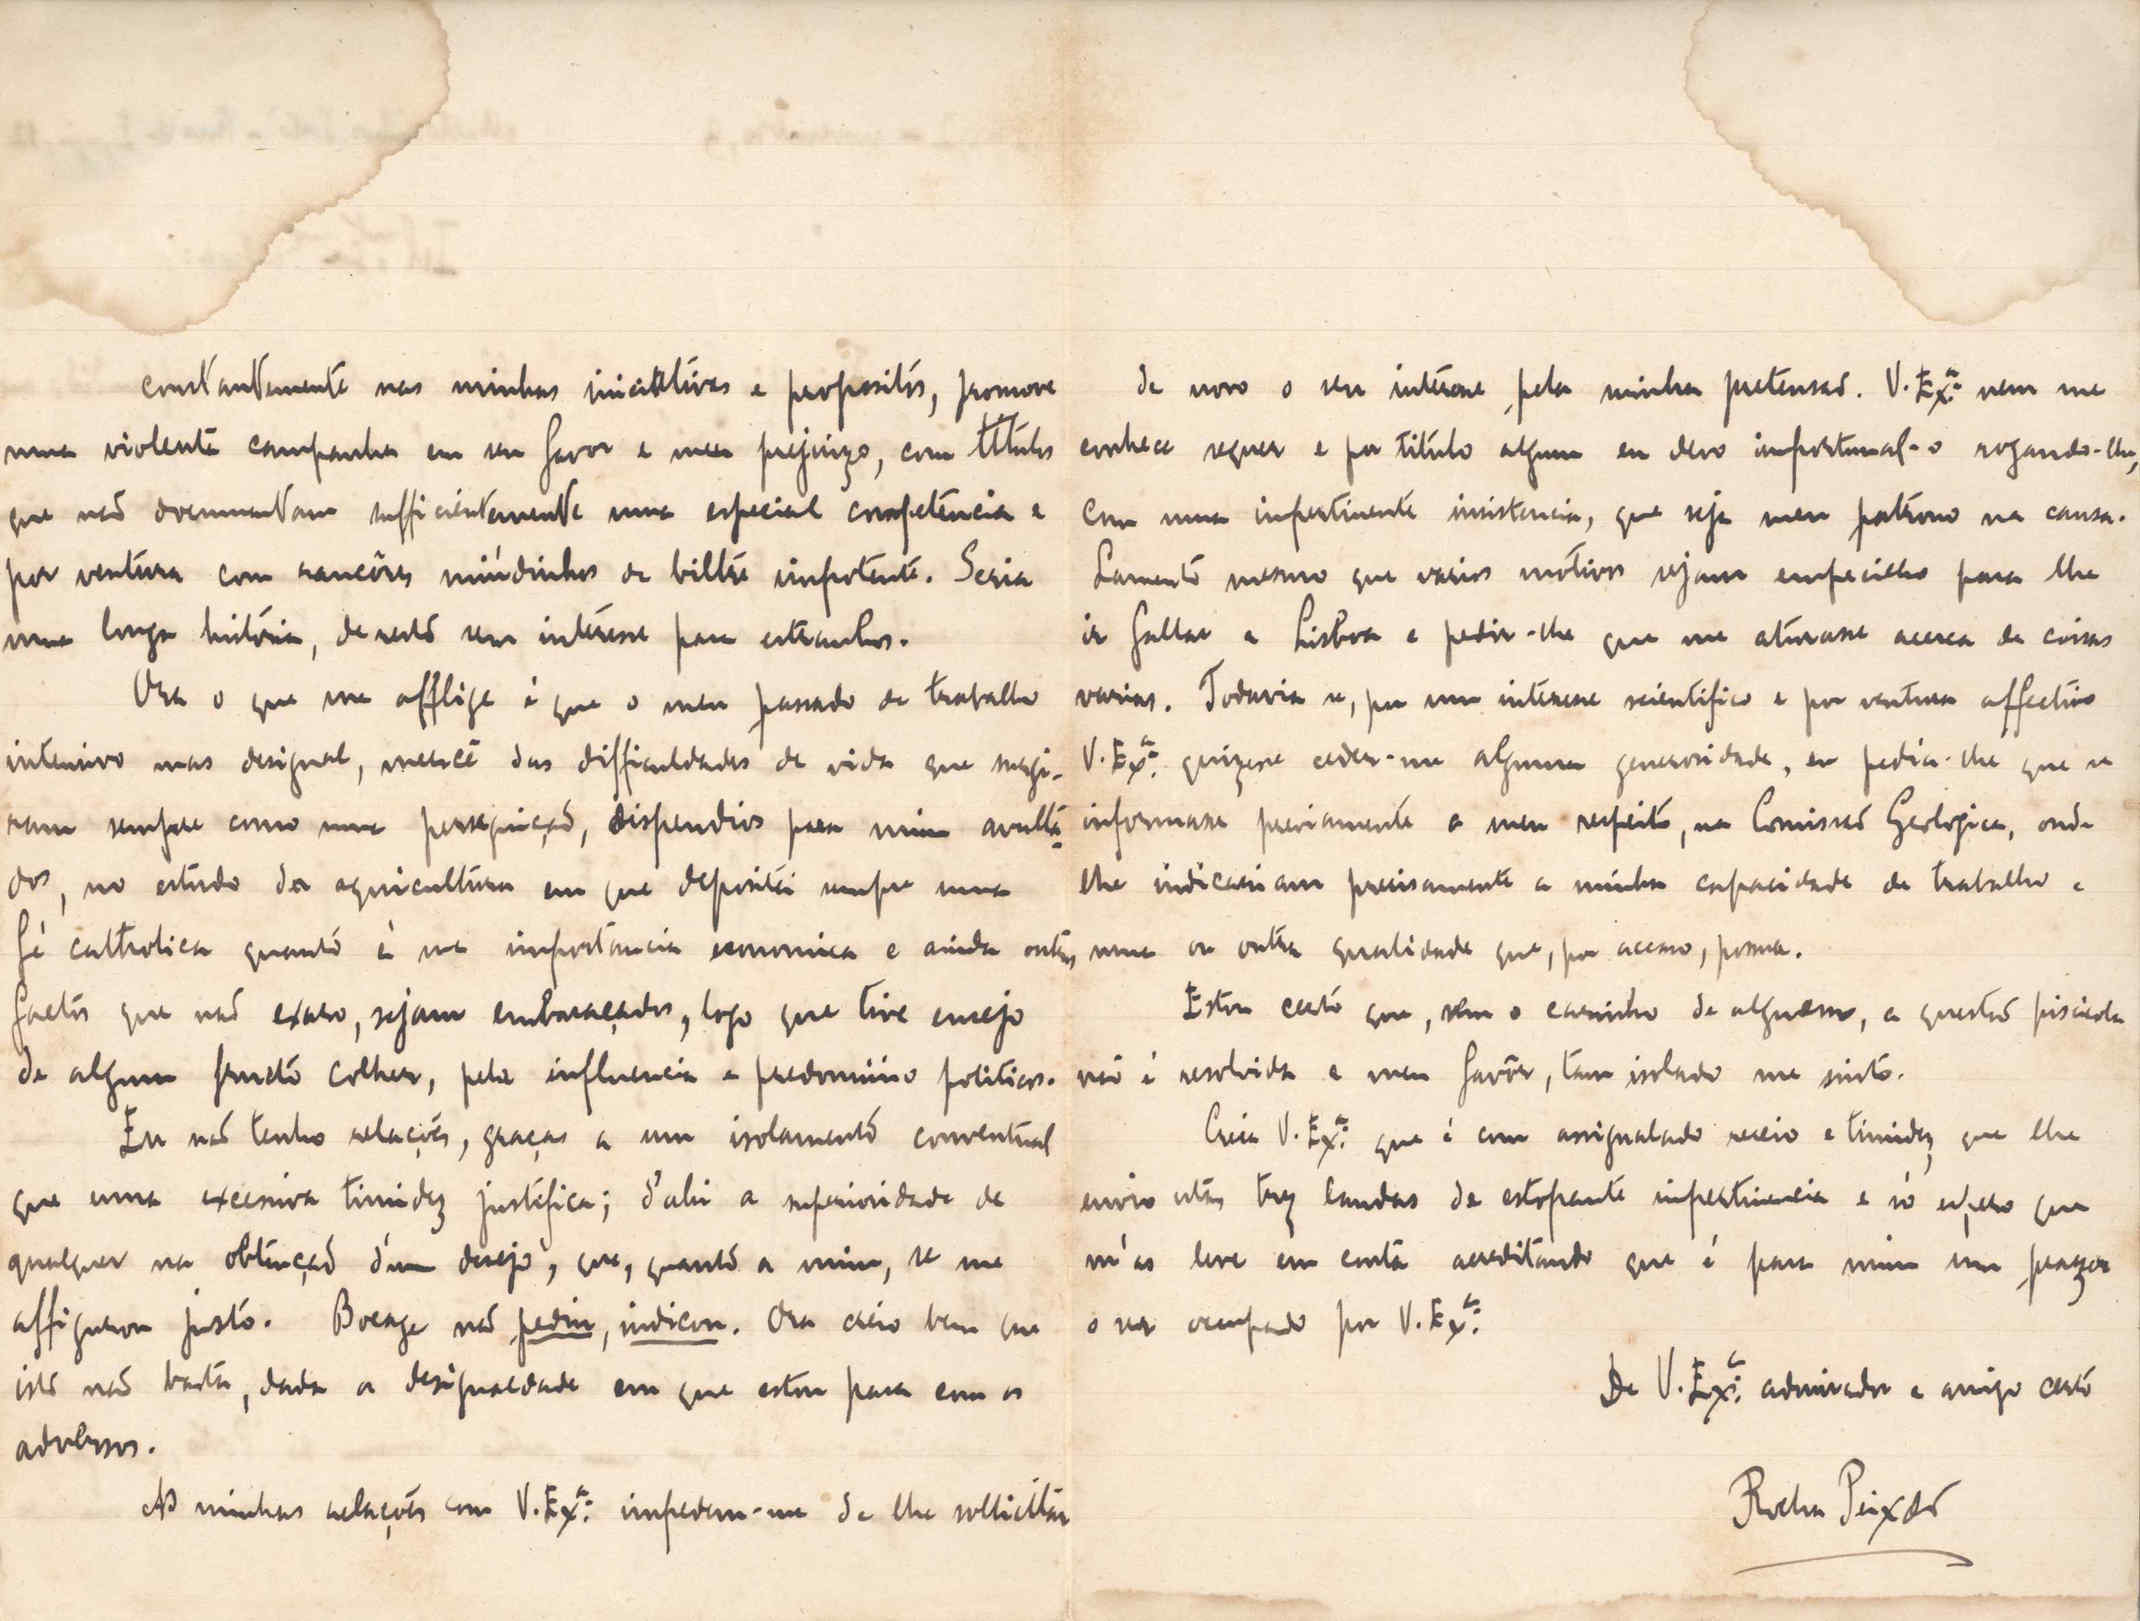 constantemente nas minhas iniciativas e propositos, promove
uma violenta campanha em seu favor e meu prejuizo, com titulos
que não documentam sufficientemente uma especial competencia e
por ventura com rancôres miúdinhos de biltre impotente. Seria
uma longa história, de resto sem intéresse para estranhos.
Ora o que me afflige é que o meu passado de trabalho
intensivo mas desigual, mercê das difficuldades de vida que surgi-
ram sempre como uma perseguição, dispendios para mim avulta-
dos, no estudo da aquicultura em que depositei sempre uma
fé catholica quanto á sua importancia economica e ainda outros
factos que não exaro, sejam embaraçados, logo que tive ensejo
de algum fructo colher, pela influencia e predominio politicos.
Eu não tenho relações, graças a um isolamento conventual
que uma excessiva timidez justifica; d'ahi a superioridade de
qualquer na obtenção d'um desejo, que, quanto a mim, se me
affigurou justo. Bocage não pediu, indicou. Ora creio bem que
isto não basta, dada a desigualdade em que estou para com os
adversos.
As minhas relações com V. Exª: impedem-me de lhe sollicitar
de novo o seu intéresse pela minha pretensão. V. Exª: nem me
conhece sequer e por titulo algum eu devo importunal-o rogando-lhe,
com uma impertinente insistencia, que seja meu patrono na causa.
Lamento mesmo que varios motivos sejam empecilho para lhe
ir fallar a Lisboa e pedir-lhe que me aturasse acerca de coisas
varias. Todavia se, por um interesse scientifico e por ventura affectivo
V. Exª: quizesse ceder-me alguma generosidade, eu pedia-lhe que se
informasse previamente a meu respeito, na Comissão Geologica, onde
lhe indicariam precisamente a minha capacidade de trabalho e
uma ou outra qualidade que, por acaso, possua.
Estou certo que, sem o carinho de alguem, a questão piscicola
não é resolvida a meu favôr, tam isolado me sinto.
Creia V. Exª: que é com assignalado receio e timidez que lhe
envio estas trez laudas de estopante impertinencia e só espero que
m'as leve em conta acreditando que é para mim um prazer
o ser occupado por V. Exª:
De V. Exª: admirador e amigo certo
Rocha Peixoto